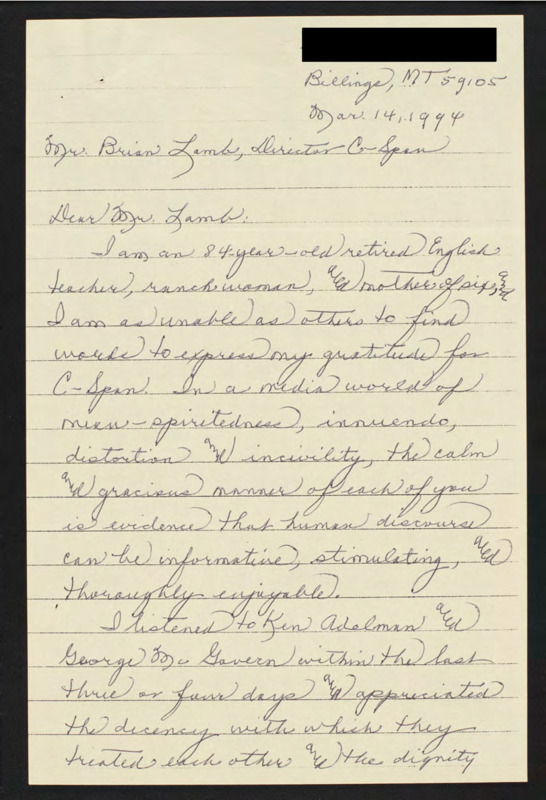 Billings, MT 59105
Mar. 14, 1994
Mr. Brian Lamb, Director C-Span
Dear Mr. Lamb:
I am an 84-year-old retired English
teacher, ranch woman, and mother of six, and
I am as unable as others to find
words to express my gratitude for
C-Span. In a media world of
mean-spiritedness, innuendo,
distortion and incivility, the calm
and gracious manner of each of you
is evidence that human discourse
can be informative, stimulating, and
thoroughly enjoyable.
I listened to Ken Adelman and
George McGovern within the last
three or four days and appreciated
the decency with which they
treated each other and the dignity